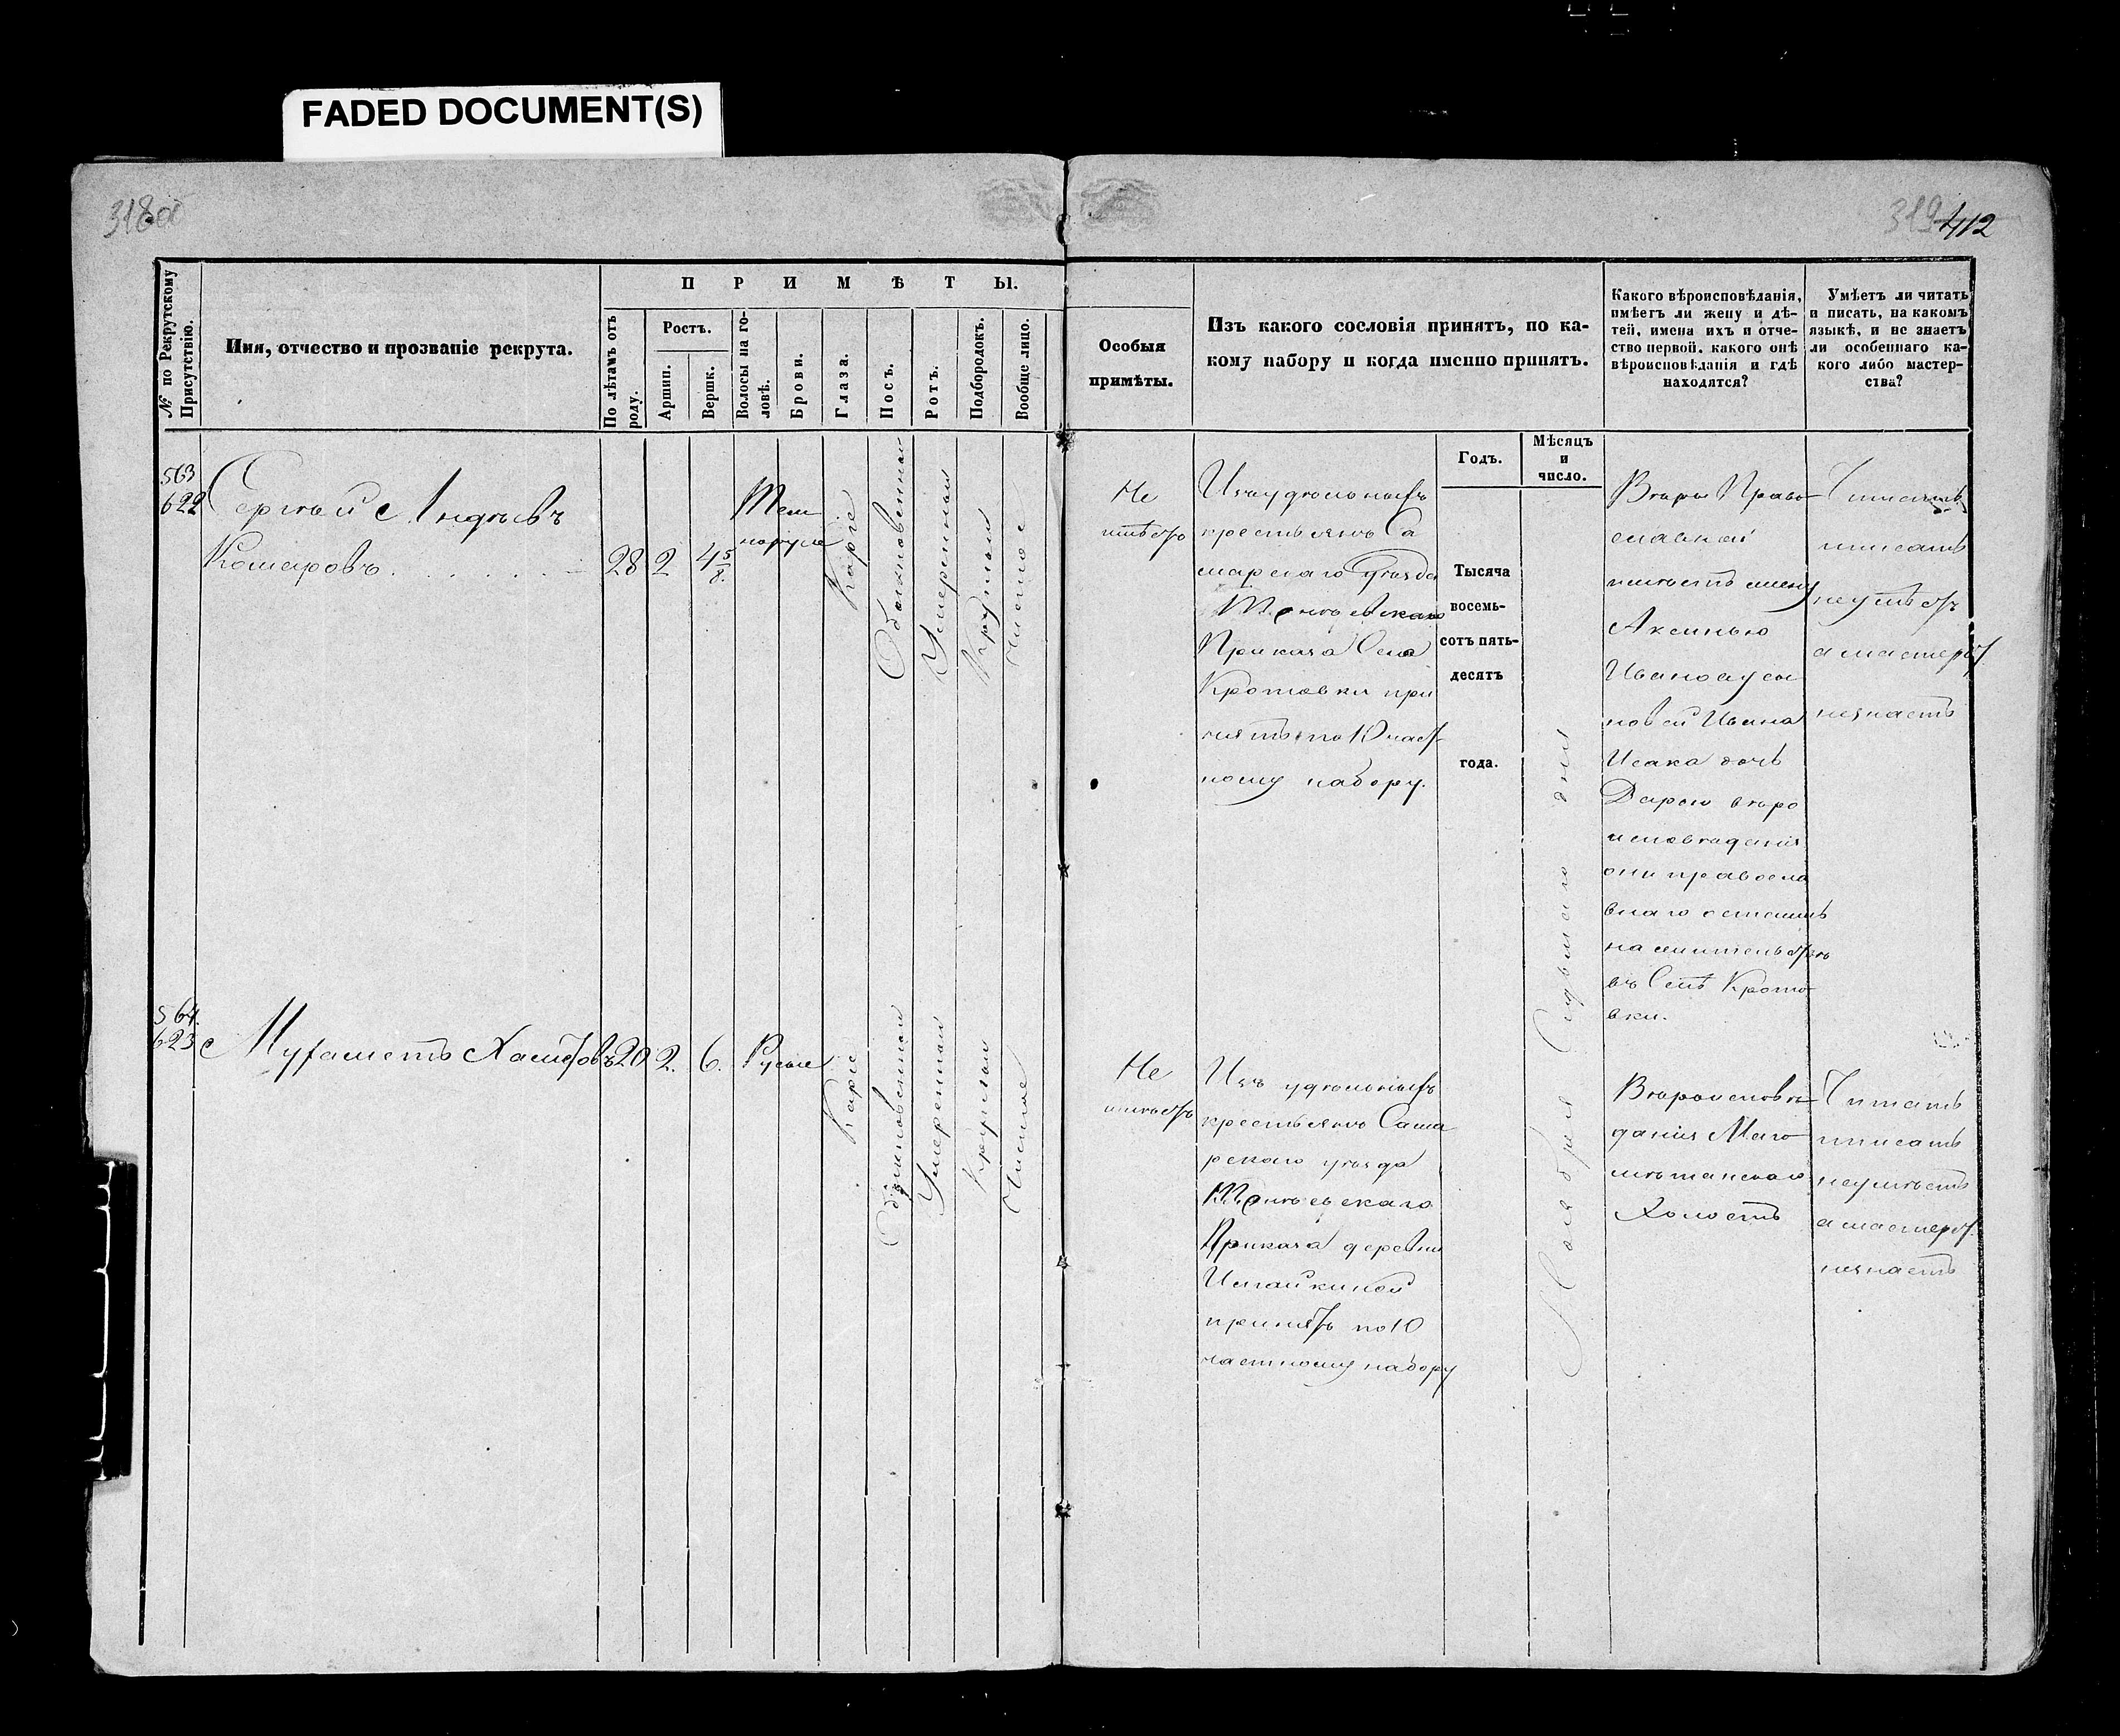 FADED DOCUMENT(S)
318а
319
412
№ по Рекрутскому Присутствію.
Имя, отчество и прозваніе рекрута.
ПРИМѢТЫ.
По лѣтамъ отъ роду.
Ростъ.
Аршин.
Вершк.
Волосы на головѣ.
Брови.
Глаза.
Носъ.
Ротъ.
Подбородокъ.
Вообще лицо.
Особыя
примѣты.
Изъ какого сословія принятъ, по ка-
кому набору и когда именно принятъ.
Годъ.
Мѣсяцъ
и
число.
Какого вѣроисповѣданія,
имѣетъ ли жену и дѣ-
тей, имена ихъ и отче-
ство первой, какого онѣ
вѣроисповѣданія и гдѣ
находятся?
Умѣетъ ли читать
и писать, на какомъ
языкѣ, и не знаетъ
ли особеннаго ка-
кого либо мастер-
ства?
563
622
Сергѣй Андѣевъ
28
2
4 5/8.
Темно
русые
Каріе
Обыкновенной
Умеренной
Круглой
Чистое
Не
имѣетъ
Изъ удѣльныхъ
крестьянъ Са
марскаго уѣзда
Приказа Села
Кротовки при
нятъ по 10 част
ному набору.
Тысяча
восемь-
сотъ пять-
десятъ
года.
Ноября Седьмаго дня
Вѣры Право
славной
имѣетъ жену
Аксинью
Иванову сы
новей Ивана
Исака дочь
Дарью вѣро
исповѣданія
они правосла
внаго
на жительствѣ
въ Селѣ Крото
вки.
Читать
писать
неумѣетъ
а мастерст
незнаетъ
564.
623
Мухаметъ Хамитовъ
20
2.
6.
Русые
Каріе
Обыкновенной
Умеренной
Круглой
Чистое
Не
имѣетъ
Изъ удѣльныхъ
крестьянъ Сама
рскаго уѣзда
Приказа деревни
принятъ по 10
частному набору
Вѣроисповѣ
данія Маго
мѣтанскаго
Холостъ
Читать
писать
неумѣетъ
а мастерст.
незнаетъ